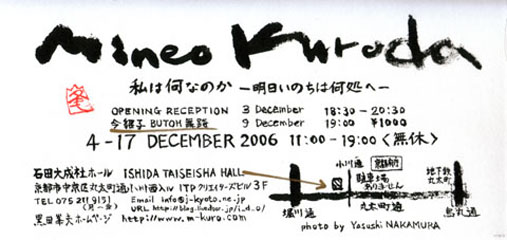 Mineo Kuroda
私は何なのか ー明日いのちは何処へー
OPENING RECEPTION 3 December 18:30 - 20:30
今貂子 BUTOH 舞踏 9 December 19:00 ¥1000
4 - 17 DECEMBER 2006 11:00 - 19:00 〈無休〉
石田大成社ホール ISHIDA TAISEISHA HALL
京都市中京区丸太町通小川西入ル ITPクリエイターズビル3F
TEL 075 211 9151 Email info@j-kyoto.ne.jp
(月〜金) URL http://blog.livedoor.jp/i_d_o/
黒田峯夫ホームページ http://www.m-kuro.com
小川通
駐車場
ありません
地下鉄
丸太町
堀川通
丸太町通
烏丸通
photo by Yasuski NAKAMURA